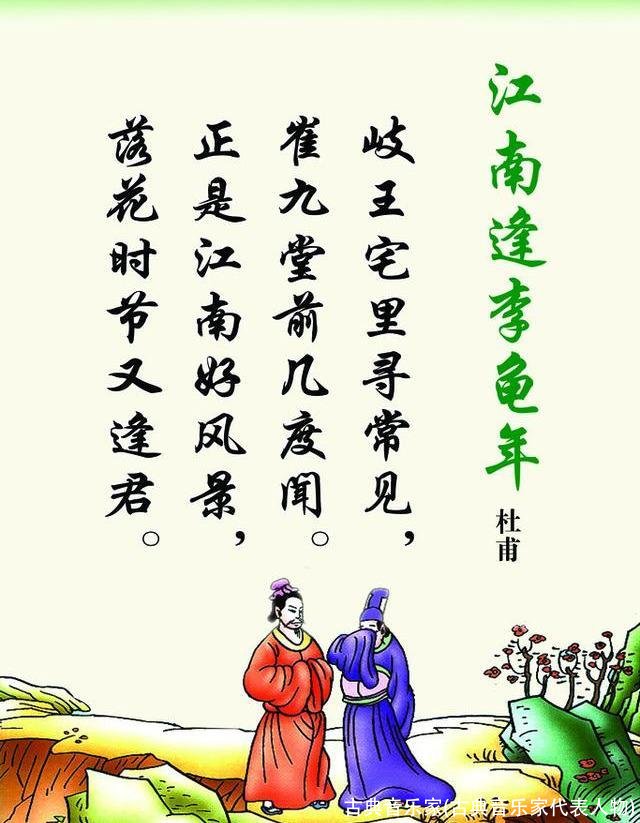 江南逢李龟年
杜甫
岐王宅里寻常见，
崔九堂前几度闻。
正是江南好风景，
落花时节又逢君。
古典音乐家(古典音乐家代表人物)